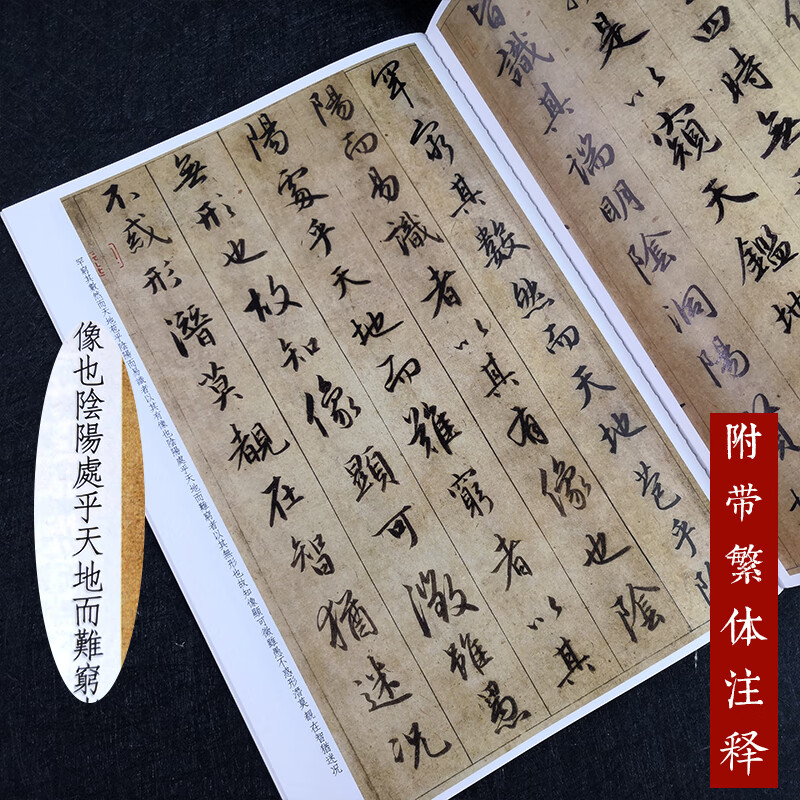 四時無
是以窺天鑑地
皆識其端明陰洞陽賢
罕窮其數然而天地苞乎陰
陽而易識者以其有像也陰
陽處乎天地而難窮者以其
無形也故知像顯可徵雖愚
不惑形潛莫覩在智猶迷況
罕窮其數然而天地苞乎陰陽而易識者以其有像也陰陽處乎天地而難窮者以其無形也故知像顯可徵雖愚不惑形潛莫覩在智猶迷況
像也陰陽處乎天地而難窮
附带繁体注释